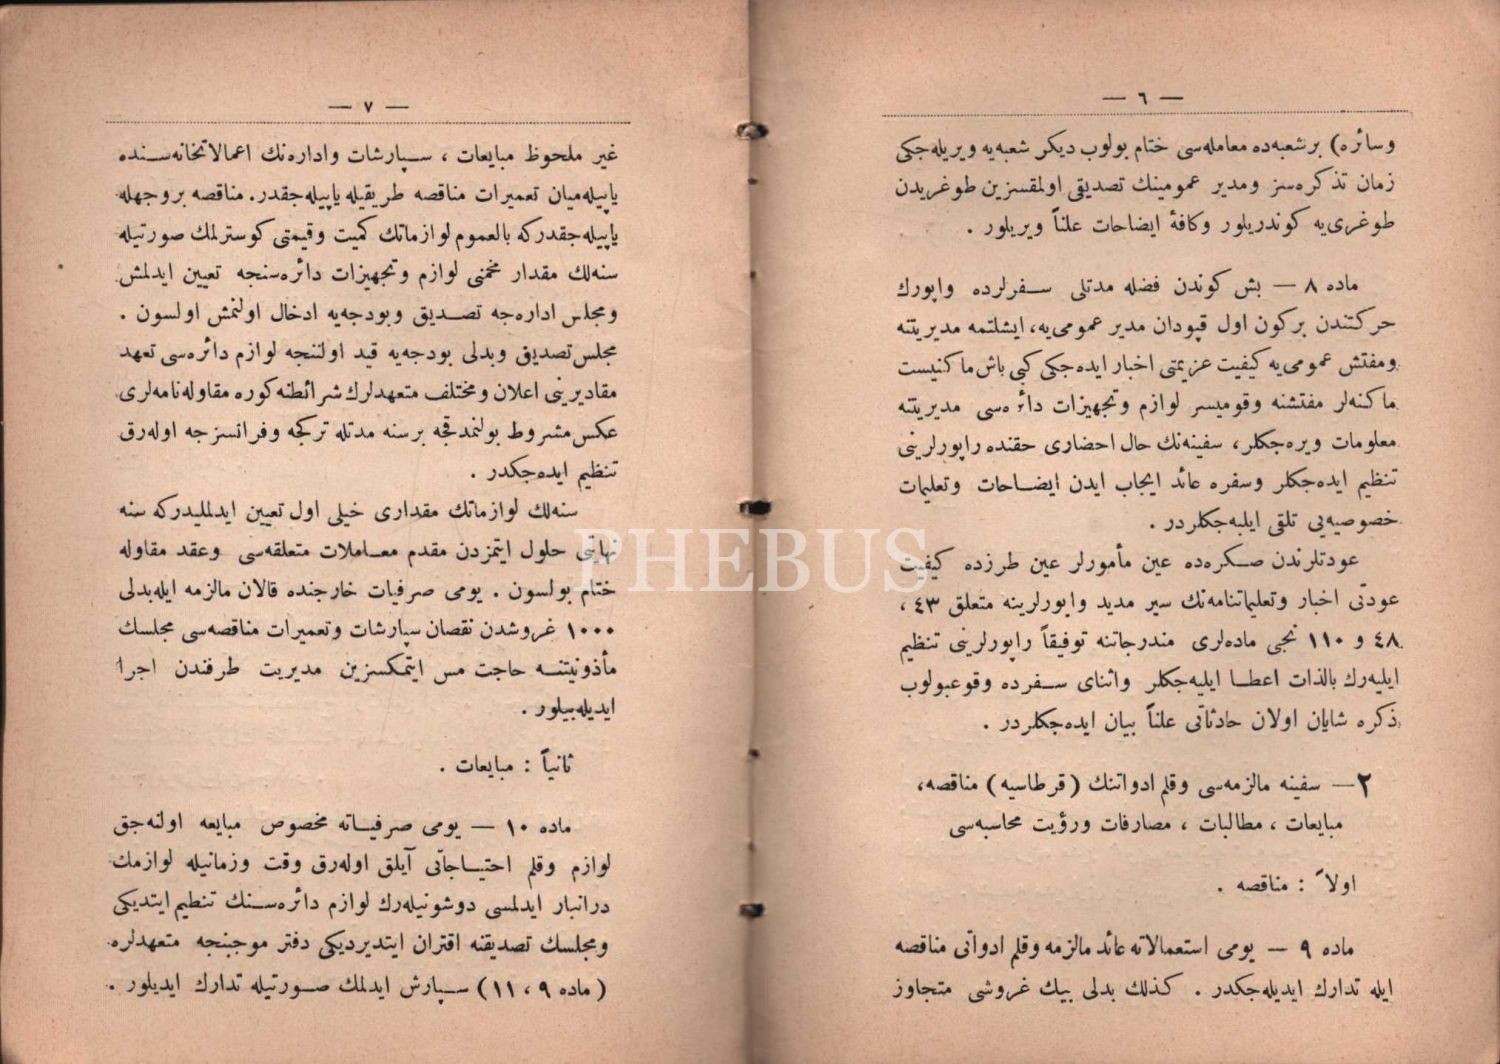 — ٦ —
وسائره) برشعبه‌ده معامله‌سی ختام بولوب دیكر شعبه‌یه ویریله‌جكی
زمان تذكره‌سز ومدیر عمومینك تصدیقی اولمقسزین طوغریدن
طوغری‌یه كوندریلور وكافهٔ ایضاحات علناً ویریلور .
ماده ٨ — بش كوندن فضله مدتلی سفرلرده واپورك
حركتندن بركون اول قپودان مدیر عمومی‌یه، ایشلتمه مدیریتنه
ومفتش عمومی‌یه كیفیت عزیمتی اخبار ایده‌جكی كبی باش‌ماكنیست
ماكنه‌لر مفتشنه وقومیسر لوازم وتجهیزات دائره‌سی مدیریتنه
معلومات ویره‌جكلر، سفینه‌نك حال احضاری حقنده راپورلرینی
تنظیم ایده‌جكلر وسفره عائد ایجاب ایدن ایضاحات وتعلیمات
خصوصیه‌یی تلقی ایلیه‌جكلردر .
عودتلرندن صكره‌ده عین مأمورلر عین طرزده كیفیت
عودتی اخبار وتعلیماتنامه‌نك سیر مدید واپورلرینه متعلق ٤٣ ،
٤٨ و ١١٠ نجی ماده‌لری مندرجاتنه توفیقاً راپورلرینی تنظیم
ایلیه‌رك بالذات اعطا ایلیه‌جكلر واثنای سفرده وقوعبولوب
ذكره شایان اولان حادثاتی علناً بیان ایده‌جكلردر .
٢— سفینه مالزمه‌سی وقلم ادواتنك (قرطاسیه) مناقصه،
مبایعات ، مطالبات ، مصارفات ورؤیت محاسبه‌سی
اولاً : مناقصه .
ماده ٩ — یومی استعمالاته عائد مالزمه وقلم ادواتی مناقصه
ایله تدارك ایدیله‌جكدر . كذلك بدلی بیك غروشی متجاوز
— ٧ —
غیر ملحوظ مبایعات ، سپارشات واداره‌نك اعمالاتخانه‌سنده
یاپیله‌میان تعمیرات مناقصه طریقیله یاپیله‌جقدر. مناقصه بروجهله
یاپیله‌جقدركه بالعموم لوازماتك كمیت وقیمتی كوسترلمك صورتیله
سنه‌لك مقدار مخمنی لوازم وتجهیزات دائره‌سنجه تعیین ایدلمش
ومجلس اداره‌جه تصدیق وبودجه‌یه ادخال اولنمش اولسون .
مجلس تصدیق وبدلی بودجه‌یه قید اولننجه لوازم دائره‌سی تعهد
مقادیرینی اعلان ومختلف متعهدلرك شرائطنه كوره مقاوله‌نامه‌لری
عكس مشروط بولنمدقجه برسنه مدتله تركجه وفرانسزجه اوله‌رق
تنظیم ایده‌جكدر .
سنه‌لك لوازماتك مقداری خیلی اول تعیین ایدلملیدركه سنه
نهایتی حلول ایتمزدن مقدم معاملات متعلقه‌سی وعقد مقاوله
ختام بولسون . یومی صرفیات خارجنده قالان مالزمه ایله‌بدلی
١٠٠٠ غروشدن نقصان سپارشات وتعمیرات مناقصه‌سی مجلسك
مأذونیتنه حاجت مس ایتمكسزین مدیریت طرفندن اجرا
ایدیله‌بیلور .
ثانیاً : مبایعات .
ماده ١٠ — یومی صرفیاته مخصوص مبایعه اولنه‌جق
لوازم وقلم احتیاجاتی آیلق اوله‌رق وقت وزمانیله لوازمك
درانبار ایدلمسی دوشونیله‌رك لوازم دائره‌سنك تنظیم ایتدیكی
ومجلسك تصدیقنه اقتران ایتدیردیكی دفتر موجبنجه متعهدلره
(ماده ٩ ، ١١) سپارش ایدلمك صورتیله تدارك ایدیلور .
PHEBUS